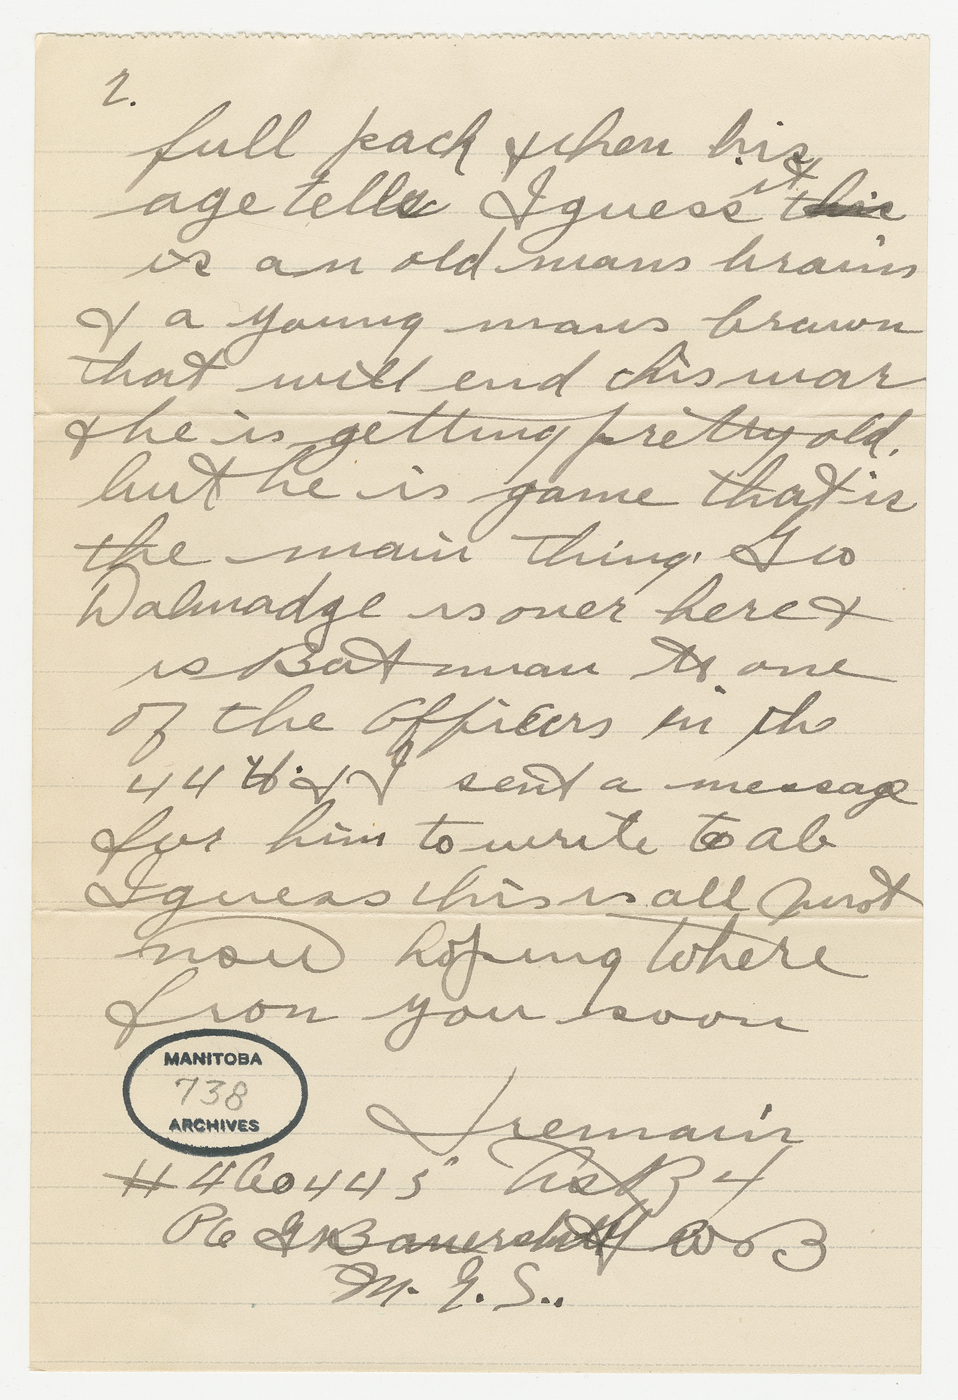 2.
full pack & when his
age tells I guess it this
is an old mans brains
& a young mans brawn
that will end this war
& he is getting pretty old.
but he is game that is
the main thing. Geo
Dalmadge is over here &
is Batman to one
of the officers in the
44th. & I sent a message
for him to write to ab
I guess this is all Just
now hoping to here
from you soon
MANITOBA
738
ARCHIVES
I remain
# 460445 As B4
Pte Co B
M. G. S..